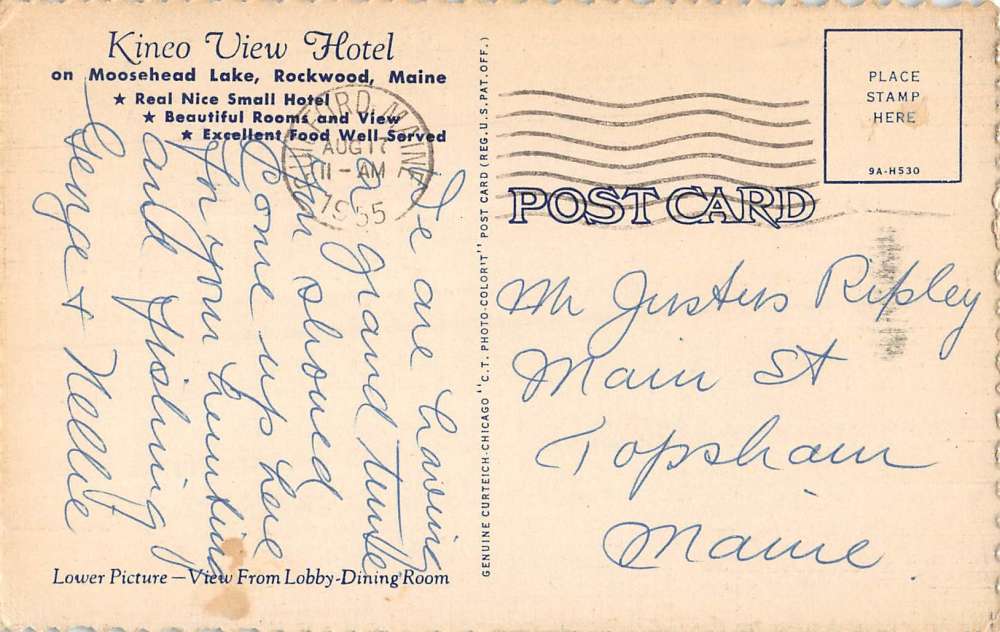 Kineo View Hotel
on Moosehead Lake, Rockwood, Maine
★ Real Nice Small Hotel
★ Beautiful Rooms and View
★ Excellent Food Well Served
AUG 17
11 - AM
1955
MAINE
We are having
a grand time
You should
Come up here
for your hunting
and fishing
George & Nellie
Lower Picture — View From Lobby-Dining Room
GENUINE CURTEICH-CHICAGO "C.T. PHOTO-COLORIT" POST CARD (REG. U.S. PAT. OFF.)
PLACE
STAMP
HERE
9A-H530
POST CARD
Mr Justus Ripley
Main St
Topsham
Maine